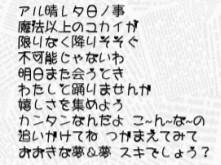 アル晴レタ日ノ事
魔法以上のユカイが
限りなく降りそそぐ
不可能じゃないわ
明日また会うとき
わたしと踊りませんか
嬉しさを集めよう
カンタンなんだよ こ～ん～な～の
追いかけてね つかまえてみて
おおきな夢&夢 スキでしょう?